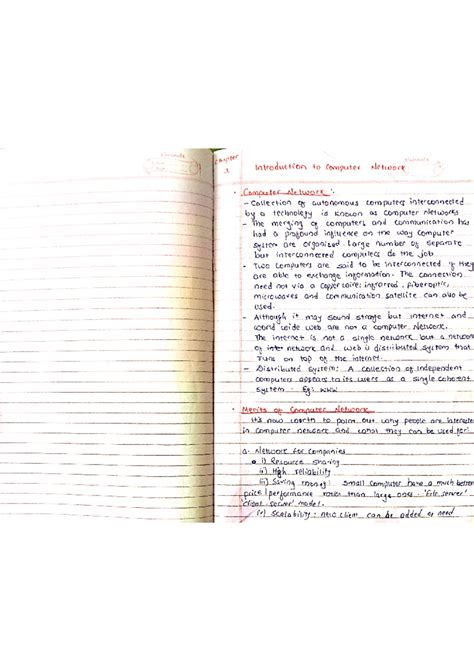 Chapter
1
Introduction to Computer Network
• Computer Network :-
- Collection of autonomous computers interconnected
by a technology is known as computer networks
- The merging of computers and communication has
had a profound influence on the way computer
system are organised. Large number of separate
but interconnected computers do the job
- Two computers are said to be interconnected if they
are able to exchange information. The connection
need not via a copper wire; infrared, fiberoptic,
microwaves and communication satellite can also be
used.
- Although it may sound strange but internet and
world wide web are not a computer network.
The internet is not a single network but a network
of network and web is distributed system that
runs on top of the internet.
- Distributed System: A collection of independent
computers appears to its users as a single coherent
system. Eg: WWW
• Merits of Computer Network
It's now worth to point out why people are interested
in computer network and what they can be used for.
a. Network for companies
i) Resource sharing
ii) High reliability
iii) Saving money: Small computer have a much better
price/performance ratio than large ones. 'file server'
'client server' model.
iv) Scalability: new client can be added as need